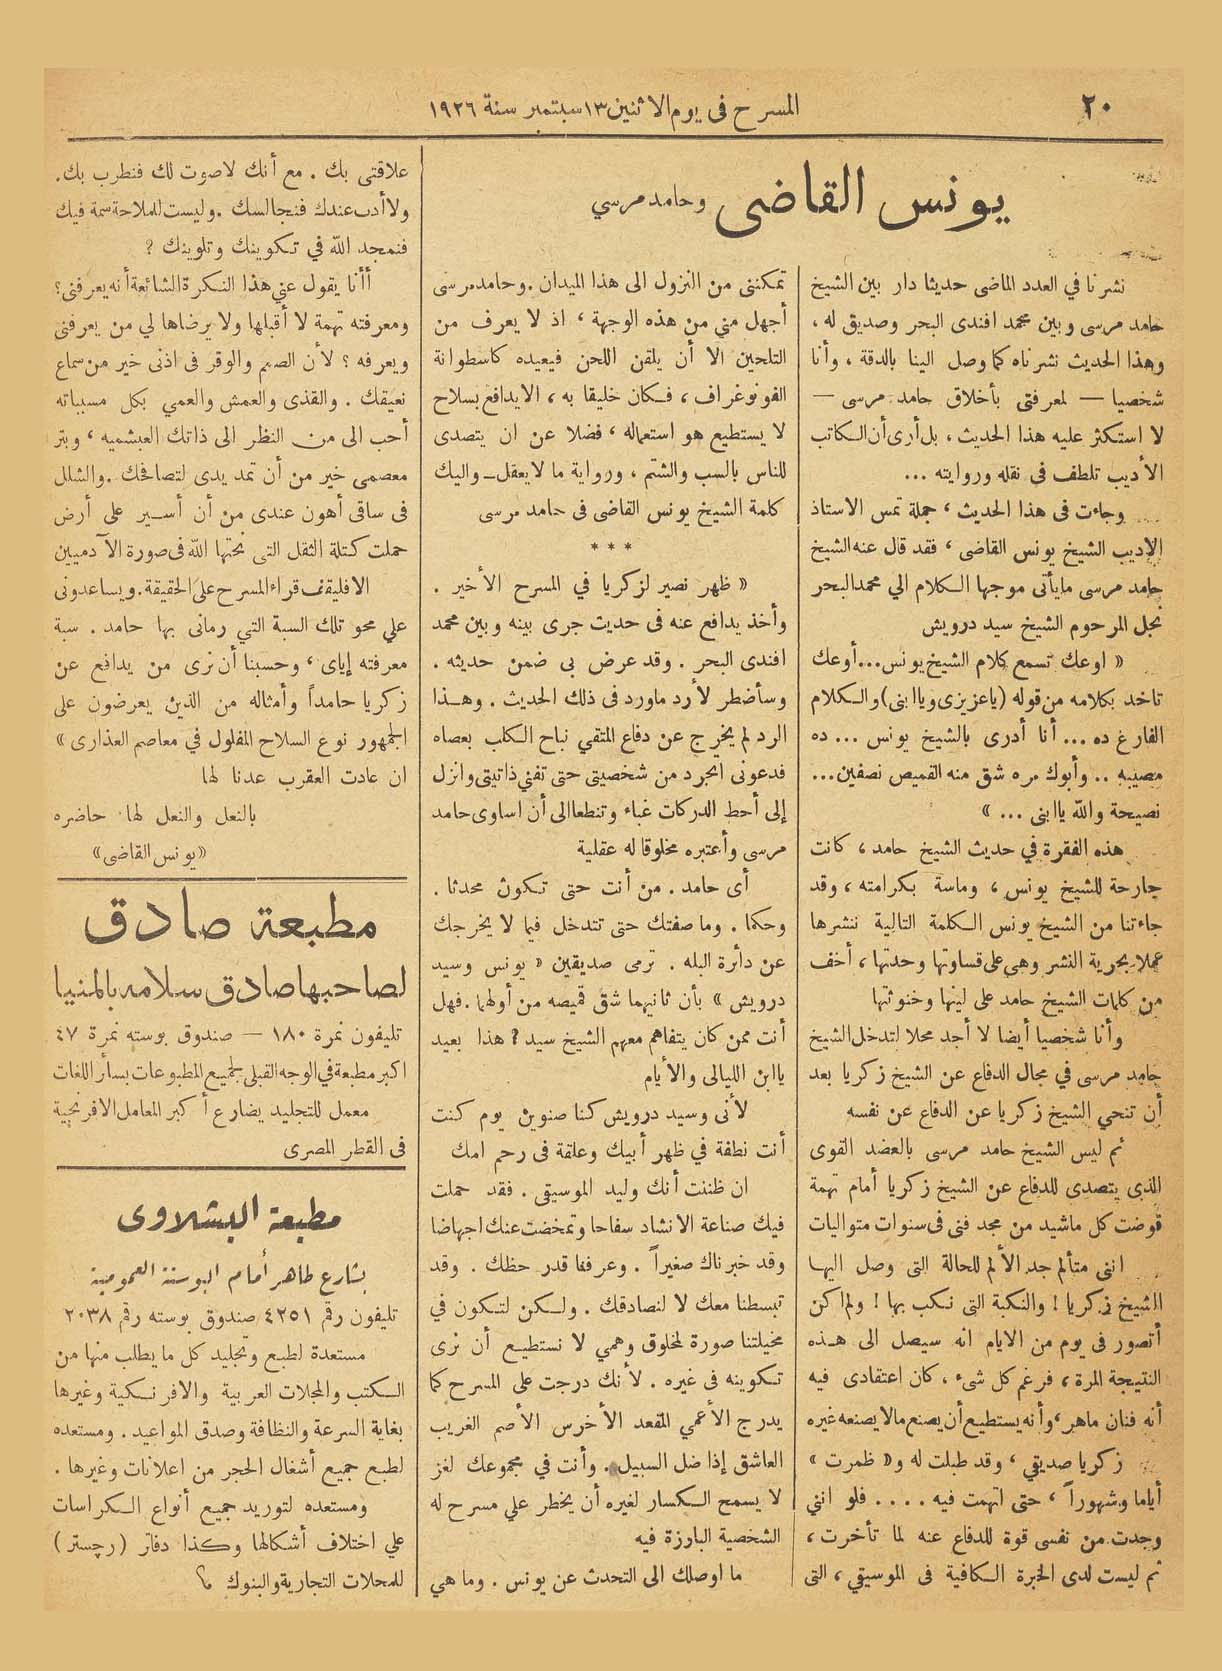 ٢٠
المسرح في يوم الاثنين ١٣ سبتمبر سنة ١٩٢٦
يونس القاضى وحامد مرسي
نشرنا في العدد الماضى حديثا دار بين الشيخ
حامد مرسى وبين محمد افندى البحر وصديق له ،
وهذا الحديث نشرناه كما وصل الينا بالدقة ، وأنا
شخصيا — لمعرفتى بأخلاق حامد مرسى —
لا استكثر عليه هذا الحديث ، بل أرى أن الكاتب
الأديب تلطف في نقله وروايته ...
وجاءت فى هذا الحديث ، جملة تمس الاستاذ
الاديب الشيخ يونس القاضى ، فقد قال عنه الشيخ
حامد مرسى مايأتى موجها الكلام الي محمد البحر
نجل المرحوم الشيخ سيد درويش
« اوعك تسمع كلام الشيخ يونس... أوعك
تاخد بكلامه من قوله (ياعزيزى ويا ابنى) والكلام
الفارغ ده ... أنا أدرى بالشيخ يونس ... ده
مصيبه .. وأبوك مره شق منه القميص نصفين ...
نصيحة والله يا ابنى ... »
هذه الفقرة في حديث الشيخ حامد ، كانت
جارحة للشيخ يونس ، وماسة بكرامته ، وقد
جاءتنا من الشيخ يونس الكلمة التالية ننشرها
عملا بحرية النشر وهي على قساوتها وحدتها ، أخف
من كلمات الشيخ حامد على لينها وخنوثتها
وأنا شخصيا أيضا لا أجد محلا لتدخل الشيخ
حامد مرسى في مجال الدفاع عن الشيخ زكريا بعد
أن تنحي الشيخ زكريا عن الدفاع عن نفسه
ثم ليس الشيخ حامد مرسى بالعضد القوى
الذى يتصدى للدفاع عن الشيخ زكريا أمام تهمة
قوضت كل ماشيد من مجد فنى فى سنوات متواليات
اننى متألم جد الألم للحالة التى وصل اليها
الشيخ زكريا ! والنكبة التى نكب بها ! ولم اكن
أتصور فى يوم من الايام انه سيصل الى هذه
النتيجة المرة ، فرغم كل شىء ، كان اعتقادى فيه
أنه فنان ماهر ، وأنه يستطيع أن يصنع مالا يصنعه غيره
زكريا صديقي ، وقد طبلت له و« ظمرت »
أياما وشهوراً ، حتى اتهمت فيه .... فلو اننى
وجدت من نفسى قوة للدفاع عنه لما تأخرت ،
ثم ليست لدى الخبرة الكافية فى الموسيقي ، التى
تمكننى من النزول الى هذا الميدان . وحامد مرسى
أجهل مني من هذه الوجهة ، اذ لا يعرف من
التلحين الا أن يلقن اللحن فيعيده كاسطوانة
الفونوغراف ، فكان خليقا به ، الا يدافع بسلاح
لا يستطيع هو استعماله ، فضلا عن ان يتصدى
للناس بالسب والشتم ، ورواية ما لا يعقل ـ واليك
كلمة الشيخ يونس القاضى فى حامد مرسى
* * *
« ظهر نصير لزكريا في المسرح الأخير .
وأخذ يدافع عنه فى حديث جرى بينه وبين محمد
افندى البحر . وقد عرض بى ضمن حديثه .
وسأضطر لأرد ماورد فى ذلك الحديث . وهذا
الرد لم يخرج عن دفاع المتقي نباح الكلب بعصاه
فدعونى انجرد من شخصيتى حتى تفنى ذاتيتى وانزل
إلى أحط الدركات غباء وتنطعا الى أن اساوى حامد
مرسى وأعتبره مخلوقا له عقلية
أى حامد . من أنت حتى تكون محدثا .
وحكما . وما صفتك حتى تتدخل فيما لا يخرجك
عن دائرة البله . ترمى صديقين « يونس وسيد
درويش » بأن ثانيهما شق قميصه من أولهما . فهل
أنت ممن كان يتفاهم معهم الشيخ سيد ? هذا بعيد
ياابن الليالى والأيام
لأنى وسيد درويش كنا صنوين يوم كنت
أنت نطفة في ظهر أبيك وعلقة فى رحم امك
ان ظننت أنك وليد الموسيقى . فقد حملت
فيك صناعة الانشاد سفاحا وتمخضت عنك اجهاضا
وقد خبرناك صغيراً . وعرفنا قدر حظك . وقد
تبسطنا معك لا لنصادقك . ولكن لتكون في
مخيلتنا صورة لمخلوق وهمي لا نستطيع أن نرى
تكوينه فى غيره . لأنك درجت على المسرح كما
يدرج الأعمي المقعد الأخرس الأصم الغريب
العاشق إذا ضل السبيل . وأنت في مجموعك لغز
لا يسمح الكسار لغيره أن يخطر علي مسرح له
الشخصية البارزة فيه
ما اوصلك الى التحدث عن يونس . وما هي
علاقتى بك . مع أنك لا صوت لك فنطرب بك .
ولا أدب عندك فنجالسك . وليست للملاحة سمة فيك
فنمجد الله في تكوينك وتلوينك ?
أأنا يقول عني هذا النكرة الشائعة أنه يعرفنى ؟
ومعرفته تهمة لا أقبلها ولا يرضاها لي من يعرفنى
ويعرفه ؟ لأن الصمم والوقر فى اذنى خير من سماع
نعيقك . والقذى والعمش والعمي بكل مسبباته
أحب الى من النظر الى ذاتك العبشميه ، وبتر
معصمى خير من أن تمد يدى لتصافحك . والشلل
فى ساقى أهون عندى من أن أسير على أرض
حملت كتلة الثقل التى نحتها الله فى صورة الآدميين
الا فليقف قراء المسرح على الحقيقة . ويساعدونى
علي محو تلك السبة التي رمانى بها حامد . سبة
معرفته إياى ، وحسبنا أن نرى من يدافع عن
زكريا حامداً وأمثاله من الذين يعرضون على
الجمهور نوع السلاح المفلول في معاصم العذارى »
ان عادت العقرب عدنا لها
بالنعل والنعل لها حاضره
«يونس القاضى»
مطبعة صادق
لصاحبها صادق سلامه بالمنيا
تليفون نمرة ١٨٠ — صندوق بوسته نمرة ٤٧
اكبر مطبعة في الوجه القبلى لجميع المطبوعات بسأر اللغات
معمل للتجليد يضارع أكبر المعامل الافرنجية
فى القطر المصرى
مطبعة البشلاوى
بشارع طاهر أمام البوستة العمومية
تليفون رقم ٤٢٥١ صندوق بوسته رقم ٢٠٣٨
مستعدة لطبع وتجليد كل ما يطلب منها من
الكتب والمجلات العربية والافرنكية وغيرها
بغاية السرعة والنظافة وصدق المواعيد . ومستعده
لطبع جميع أشغال الحجر من اعلانات وغيرها .
ومستعده لتوريد جميع أنواع الكراسات
علي اختلاف أشكالها وكذا دفاتر ( رجستر )
للمحلات التجارية والبنوك